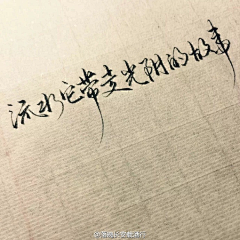 流水它带走光阴的故事